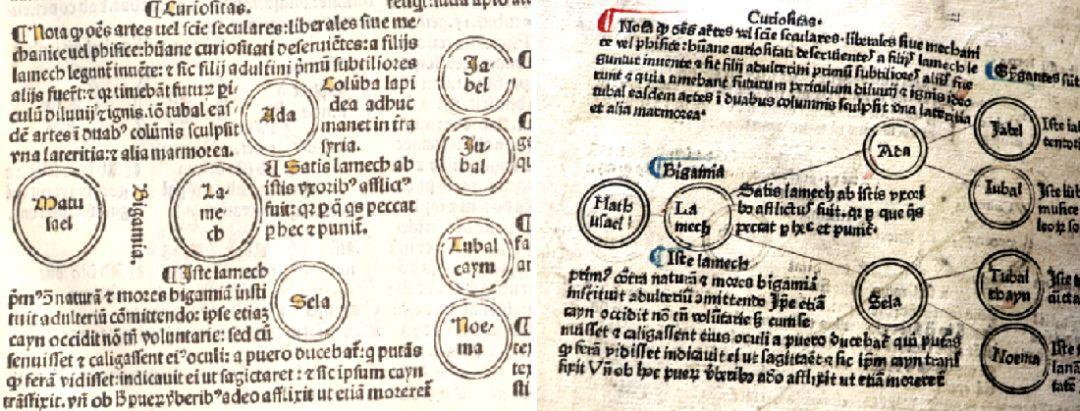 ¶ Curiositas.
¶ Nota ꝙ oēs artes uel scīe seculares: liberales siue me
chanice uel phisice: hūane curiositati deseruiētes: a filijs
lamech legunt̄ inuēte: ⁊ sic filij adulтini pꝛimū subtiliores
alijs fuer̄t: ⁊ qꝛ timebāt futuꝝ ꝑi
culū diluuij ⁊ ignis. iō tubal eas
dē artes ī duab⁹ colūnis sculpsit
vna lateritia: ⁊ alia marmorea.
Ada
Colūba lapi
dea adhuc
manet in tra
syria.
Ja
bel
Ju
bal
Matu
sael
Bigamia.
La
me
ch
¶ Satis lamech ab
istis vxorib⁹ afflict⁹
fuit: qꝛ ꝑ q̄ qs peccat
ꝑ hec ⁊ punit̄.
Tubal
caym
¶ Iste lamech
pꝛim⁹ ↄ̄ naturā ⁊ mores bigamiā insti
tuit adulteriū cōmittendo: ipse etiaꝫ
cayn occidit nō tn̄ voluntarie: sed cū
Sela
Noe
ma
senuisset ⁊ caligassent ei⁹ oculi: a puero ducebat̄: q putās
ꝙ ferā vidisset: indicauit ei ut sagictaret: ⁊ sic ipsum cayn
trāsfixit. vn̄ ob h̄ pueꝝ ꝟberib⁹ adeo afflixit ut etiā moreret̄
Curiositas.
¶ Nota ꝙ oēs artes vel scīe seculares. liberales siue mechani
ce vel phisice: hūane curiositati deseruientes a filijs lamech le
guntur inuente ⁊ sic filij adulterini primū subtiliores alijs fue
runt ⁊ quia timebant futurum periculum diluuij ⁊ ignis ideo
tubal easdem artes ī duabus columnis sculpsit vna lateritia
et alia marmorea.
¶ Gygantes
Ada
Jabel
Iste
¶ Bigamia
Math
usael
La
mech
Satis lamech ab istis vxori
bꝰ afflictus fuit. qꝛ ꝑ que qs
peccat ꝑ hec et punit̄.
Iubal
Iste
¶ Iste lamech
prim⁹ cōtra naturā ⁊ mores bigamiā
instituit adulteriū cōmittendo Ipse etiā
cayn occidit nō tn̄ voluntarie sꝫ cum se
Sela
Tubal
chayn
nuisset ⁊ caligassent eius oculi a puero ducebat̄ qui putās
ꝙ ferā vidisset indicauit ei ut sagittaret ⁊ sic ipm̄ cayn trans
fixit Vn̄ ob hoc pueꝝ ꝟberibꝰ adeo afflixit ut etiā moreret̄
Noema